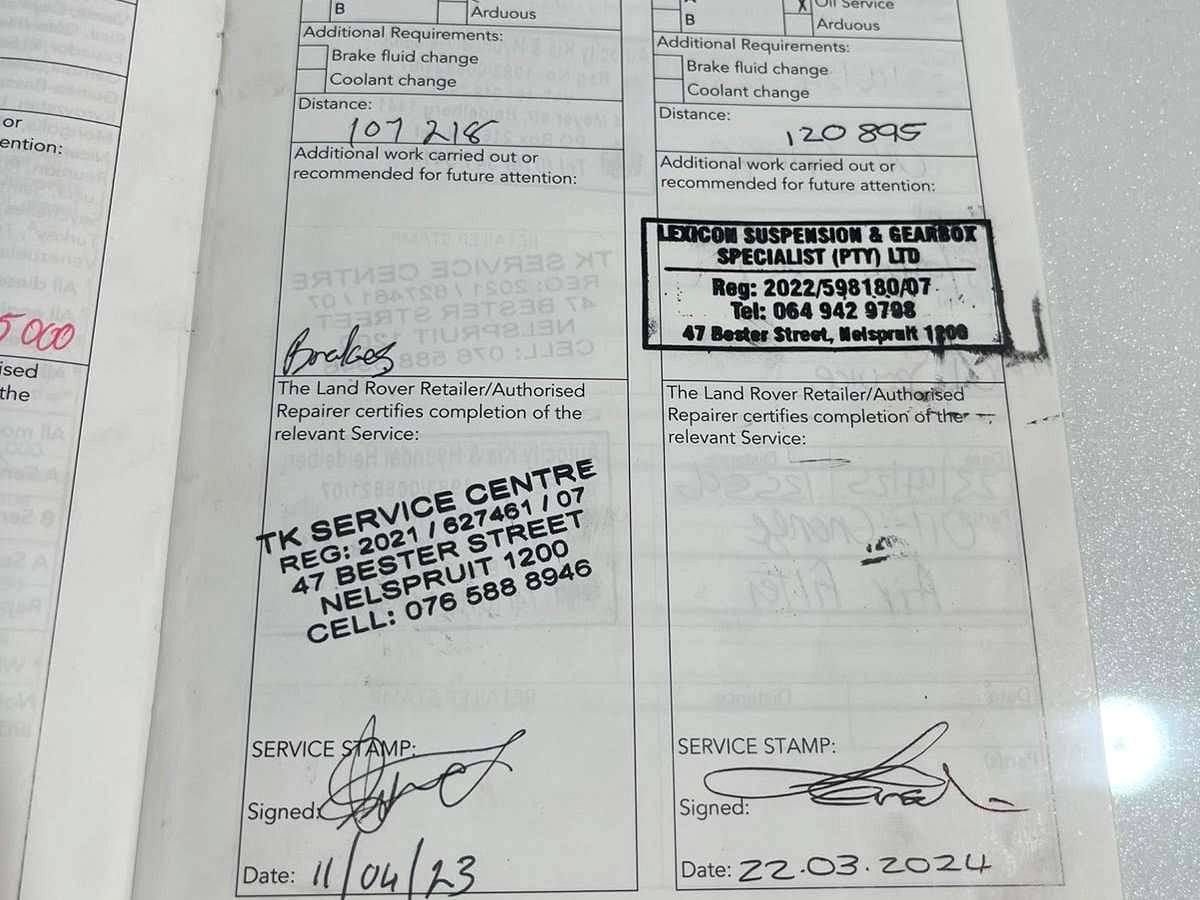 or
ention:
5 000
ised
the
B
Arduous
Additional Requirements:
Brake fluid change
Coolant change
Distance:
107 218
Additional work carried out or
recommended for future attention:
Brakes
The Land Rover Retailer/Authorised
Repairer certifies completion of the
relevant Service:
TK SERVICE CENTRE
REG: 2021 / 627461 / 07
47 BESTER STREET
NELSPRUIT 1200
CELL: 076 588 8946
SERVICE STAMP:
Signed:
Date: 11/04/23
X Oil Service
B
Arduous
Additional Requirements:
Brake fluid change
Coolant change
Distance:
120 895
Additional work carried out or
recommended for future attention:
LEXICON SUSPENSION & GEARBOX
SPECIALIST (PTY) LTD
Reg: 2022/598180/07
Tel: 064 942 9798
47 Bester Street, Nelspruit 1200
The Land Rover Retailer/Authorised
Repairer certifies completion of the
relevant Service:
SERVICE STAMP:
Signed:
Date: 22.03.2024